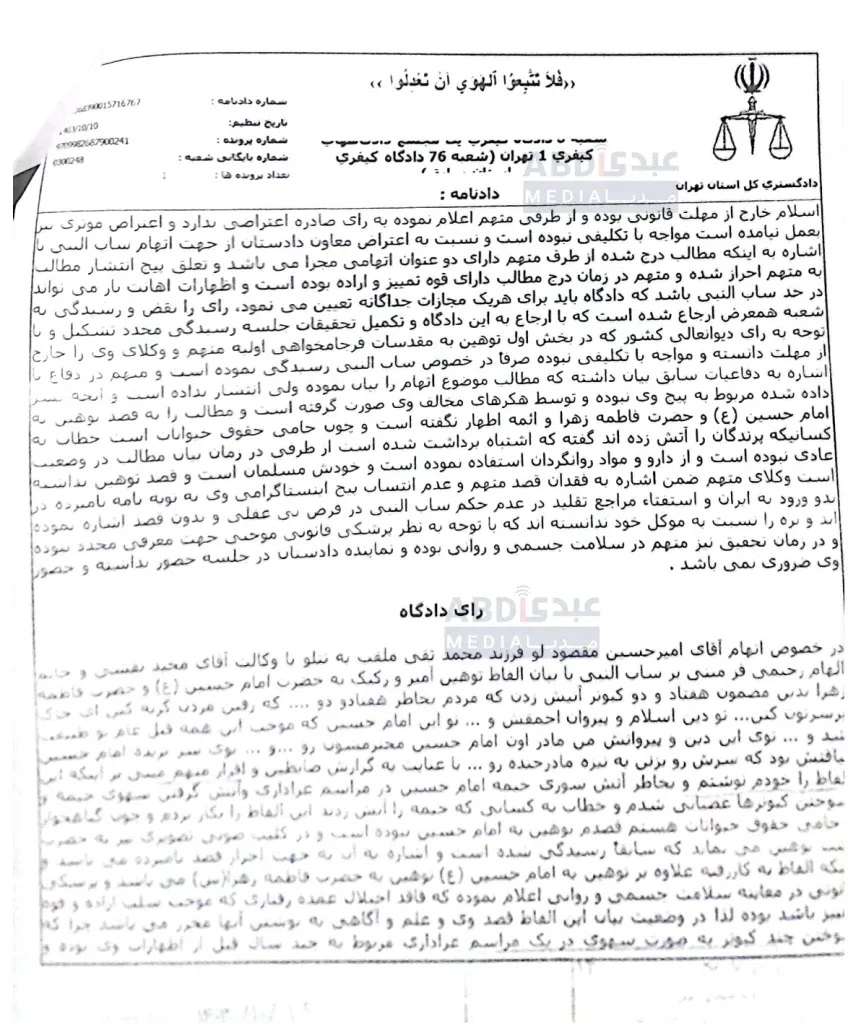 «فَلاَ تَتَّبِعُوا الْهَوَي أَن تَعْدِلُوا»
شماره دادنامه : 368390015716767
تاریخ تنظیم: 1403/10/10
شماره پرونده : 9709982687900241
شماره بایگانی شعبه : 0300248
تعداد پرونده ها :
کیفری 1 تهران (شعبه 76 دادگاه کیفری
عبدی ABDI
مدیا MEDIA
دادگستری کل استان تهران
دادنامه :
اسلام خارج از مهلت قانونی بوده و از طرفی متهم اعلام نموده به رای صادره اعتراضی ندارد و اعتراض موثری نیز
بعمل نیامده است مواجه با تکلیفی نبوده است و نسبت به اعتراض معاون دادستان از جهت اتهام ساب النبی با
اشاره به اینکه مطالب درج شده از طرف متهم دارای دو عنوان اتهامی مجزا می باشد و تعلق پیج انتشار مطالب
به متهم احراز شده و متهم در زمان درج مطالب دارای قوه تمییز و اراده بوده است و اظهارات اهانت بار می تواند
در حد ساب النبی باشد که دادگاه باید برای هریک مجازات جداگانه تعیین می نمود، رای را نقض و رسیدگی به
شعبه همعرض ارجاع شده است که با ارجاع به این دادگاه و تکمیل تحقیقات جلسه رسیدگی مجدد تشکیل و با
توجه به رای دیوانعالی کشور که در بخش اول توهین به مقدسات فرجامخواهی اولیه متهم و وکلای وی را خارج
از مهلت دانسته و مواجه با تکلیفی نبوده صرفا در خصوص ساب النبی رسیدگی نموده است و متهم در دفاع با
اشاره به دفاعیات سابق بیان داشته که مطالب موضوع اتهام را بیان نموده ولی انتشار نداده است و آنچه نشر
داده شده مربوط به پیج وی نبوده و توسط هکرهای مخالف وی صورت گرفته است و مطالب را به قصد توهین به
امام حسین (ع) و حضرت فاطمه زهرا و ائمه اظهار نگفته است و چون حامی حقوق حیوانات است خطاب به
کسانیکه پرندگان را آتش زده اند گفته که اشتباه برداشت شده است از طرفی در زمان بیان مطالب در وضعیت
عادی نبوده است و از دارو و مواد روانگردان استفاده نموده است و خودش مسلمان است و قصد توهین نداشته
است وکلای متهم ضمن اشاره به فقدان قصد متهم و عدم انتساب پیج اینستاگرامی وی به توبه نامه نامبرده در
بدو ورود به ایران و استفتاء مراجع تقلید در عدم حکم ساب النبی در فرض بی عقلی و بدون قصد اشاره نموده
اند و بزه را نسبت به موکل خود ندانسته اند که با توجه به نظر پزشکی قانونی موجبی جهت معرفی مجدد نبوده
و در زمان تحقیق نیز متهم در سلامت جسمی و روانی بوده و نماینده دادستان در جلسه حضور نداشته و حضور
وی ضروری نمی باشد .
عبدی ABDI
مدیا MEDIA
رای دادگاه
در خصوص اتهام آقای امیرحسین مقصود لو فرزند محمد تقی ملقب به تتلو با وکالت آقای مجید نقشی و خانم
الهام رحیمی فر مبنی بر ساب النبی با بیان الفاظ توهین آمیز و رکیک به حضرت امام حسین (ع) و حضرت فاطمه
زهرا بدین مضمون هفتاد و دو کبوتر آتیش زدن که مردم بخاطر هفتادو دو .... که رفتن مردن گریه کنن ای خاک
برسرتون کنن... تو دین اسلام و پیروان احمقش و ... تو این امام حسین که موجب این همه قتل عام تو طبیعت
شد و ... توی این دین و پیروانش من مادر اون امام حسین محترمسون رو ...و... توی سر بریده امام حسین
یافتش بود که سرش رو بزنن به نیزه مادرجنده رو ... با عنایت به گزارش ضابطین و اقرار متهم مبنی بر اینکه این
الفاظ را خودم نوشتم و بخاطر آتش سوزی خیمه امام حسین در مراسم عزاداری وآتش گرفتن سهوی خیمه و
سوختن کبوترها عصبانی شدم و خطاب به کسانی که خیمه را آتش زدند این الفاظ را بکار بردم و چون گیاهخوار
حامی حقوق حیوانات هستم قصدم توهین به امام حسین نبوده است و در کلیپ صوتی تصویری نیز به حضرت
توهین می نماید که سابقا رسیدگی شده است و اشاره به آن به جهت احراز قصد نامبرده می باشد و
الفاظ به کاررفته علاوه بر توهین به امام حسین (ع) توهین به حضرت فاطمه زهرا(س) می باشد و پزشکی
قانونی در معاینه سلامت جسمی و روانی اعلام نموده که فاقد اختلال عمده رفتاری که موجب سلب اراده و قوه
تمییز باشد بوده لذا در وضعیت بیان این الفاظ قصد وی و علم و آگاهی به توهین آنها محرز می باشد چرا که
سوختن چند کبوتر به صورت سهوی در یک مراسم عزاداری مربوط به چند سال قبل از اظهارات وی بوده و